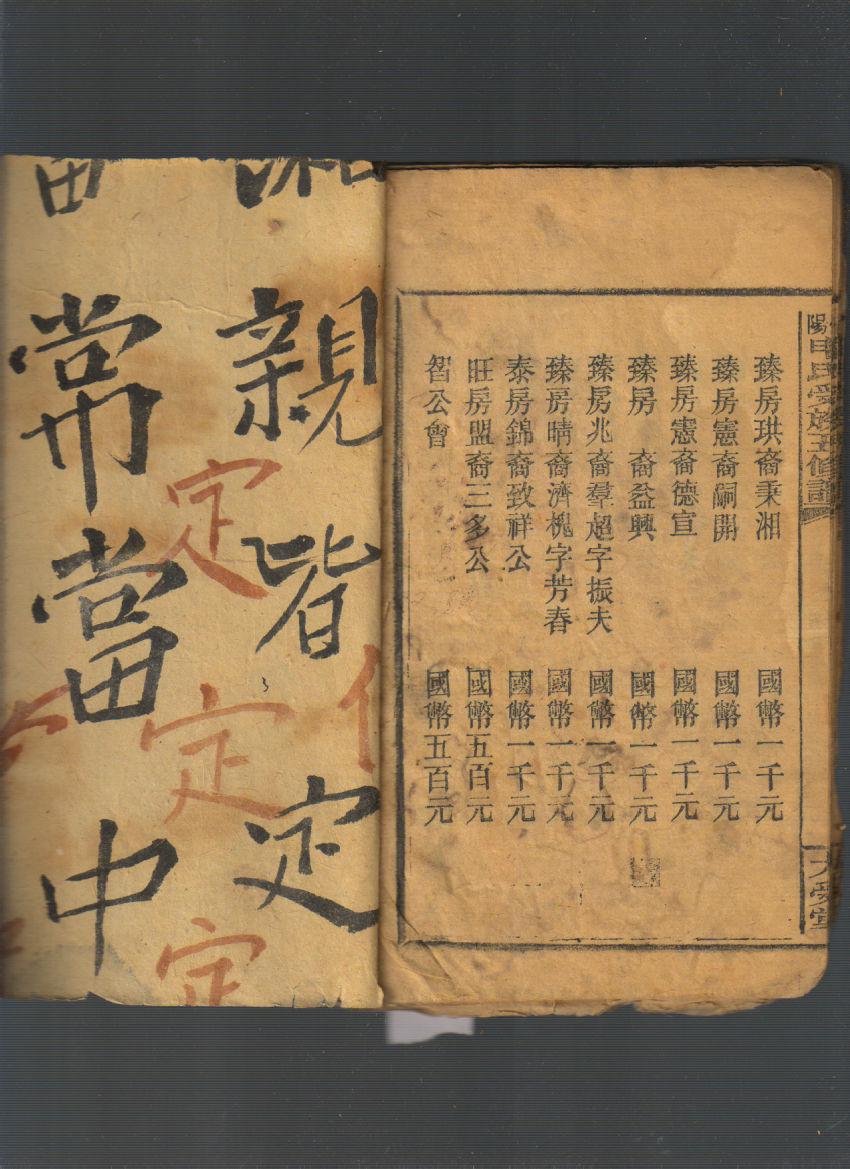 臻房珙裔秉湘 國幣一千元
臻房憲裔嗣開 國幣一千元
臻房憲裔德宣 國幣一千元
臻房 裔益興 國幣一千元
臻房兆裔羣超字振夫 國幣一千元
臻房晴裔濟槐字芳春 國幣一千元
泰房錦裔致祥公 國幣一千元
旺房盟裔三多公 國幣五百元
智公會 國幣五百元
親皆定
常當中
定
定
定